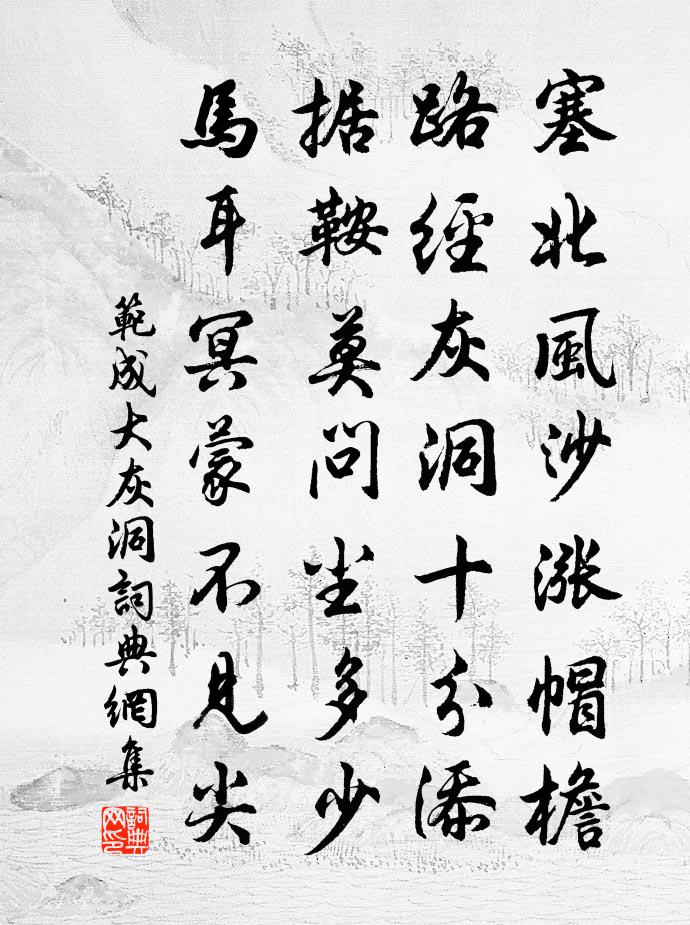 塞北風沙漲帽檐
路經灰洞十分添
据鞍莫問尘多少
馬耳冥蒙不見尖
範成大灰洞詞典網集
詞典网印